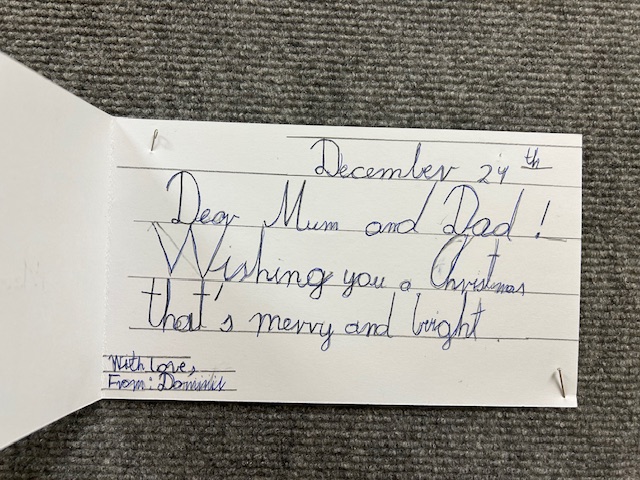 December 24th
Dear Mum and Dad!
Wishing you a Christmas
that's merry and bright.
With love,
From: Dominik